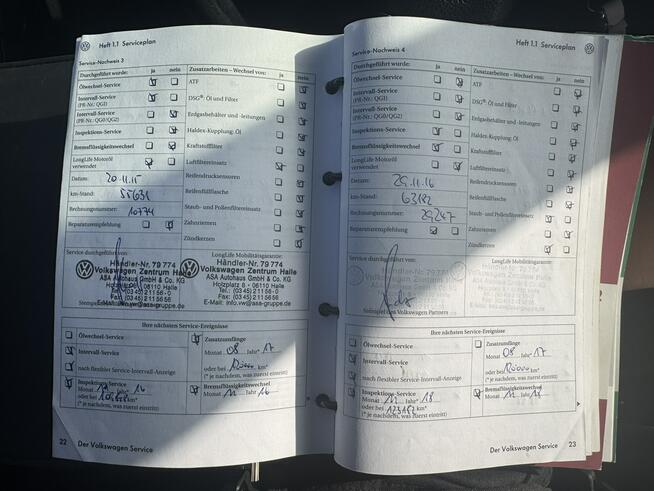 Heft 1.1 Serviceplan
Service-Nachweis 3
Durchgeführt wurde: ja nein
Ölwechsel-Service
Intervall-Service
(PR-Nr.: QG1)
Intervall-Service
(PR-Nr.: QG0/QG2)
Inspektions-Service
Bremsflüssigkeitswechsel
LongLife Motoröl
verwendet
Datum: 20.11.15
km-Stand: 55631
Rechnungsnummer: 10774
Reparaturempfehlung
Zusatzarbeiten – Wechsel von: ja nein
ATF
DSG®: Öl und Filter
Erdgasbehälter und -leitungen
Haldex-Kupplung: Öl
Kraftstofffilter
Luftfiltereinsatz
Reifendruckensoren
Reifenfüllflasche
Staub- und Pollenfiltereinsatz
Zahnriemen
Zündkerzen
Service durchgeführt von:
Händler-Nr. 79 774
Volkswagen Zentrum Halle
ASA Autohaus GmbH & Co. KG
Holzplatz 8 - 06110 Halle
LongLife Mobilitätsgarantie:
Händler-Nr. 79 774
Volkswagen Zentrum Halle
ASA Autohaus GmbH & Co. KG
Holzplatz 8 • 06110 Halle
Tel.: (03 45) 2 11 56-0
E-Mail: info.vw@asa-gruppe.de
Ihre nächsten Service-Ereignisse
Ölwechsel-Service
Intervall-Service
nach flexibler Service-Intervall-Anzeige
Inspektions-Service
Monat Jahr* 16
oder bei km*
(* je nachdem, was zuerst eintritt)
Zusatzumfänge
Monat 08 Jahr* 17
oder bei km*
(* je nachdem, was zuerst eintritt)
Bremsflüssigkeitswechsel
Monat 11 Jahr 16
22 Der Volkswagen Service
Heft 1.1 Serviceplan
Service-Nachweis 4
Durchgeführt wurde: ja nein
Ölwechsel-Service
Intervall-Service
(PR-Nr.: QG1)
Intervall-Service
(PR-Nr.: QG0/QG2)
Inspektions-Service
Bremsflüssigkeitswechsel
LongLife Motoröl
verwendet
Datum: 29.11.16
km-Stand: 63182
Rechnungsnummer: 29247
Reparaturempfehlung
Zusatzarbeiten – Wechsel von: ja nein
ATF
DSG®: Öl und Filter
Erdgasbehälter und -leitungen
Haldex-Kupplung: Öl
Kraftstofffilter
Luftfiltereinsatz
Reifendruckensoren
Reifenfüllflasche
Staub- und Pollenfiltereinsatz
Zahnriemen
Zündkerzen
Service durchgeführt von:
Stempel des Volkswagen Partners
LongLife Mobilitätsgarantie:
Ihre nächsten Service-Ereignisse
Ölwechsel-Service
Intervall-Service
nach flexibler Service-Intervall-Anzeige
Inspektions-Service
Monat 11 Jahr* 18
oder bei 123182 km*
(* je nachdem, was zuerst eintritt)
Zusatzumfänge
Monat 08 Jahr* 17
oder bei km*
(* je nachdem, was zuerst eintritt)
Bremsflüssigkeitswechsel
Monat 11 Jahr 18
Der Volkswagen Service 23